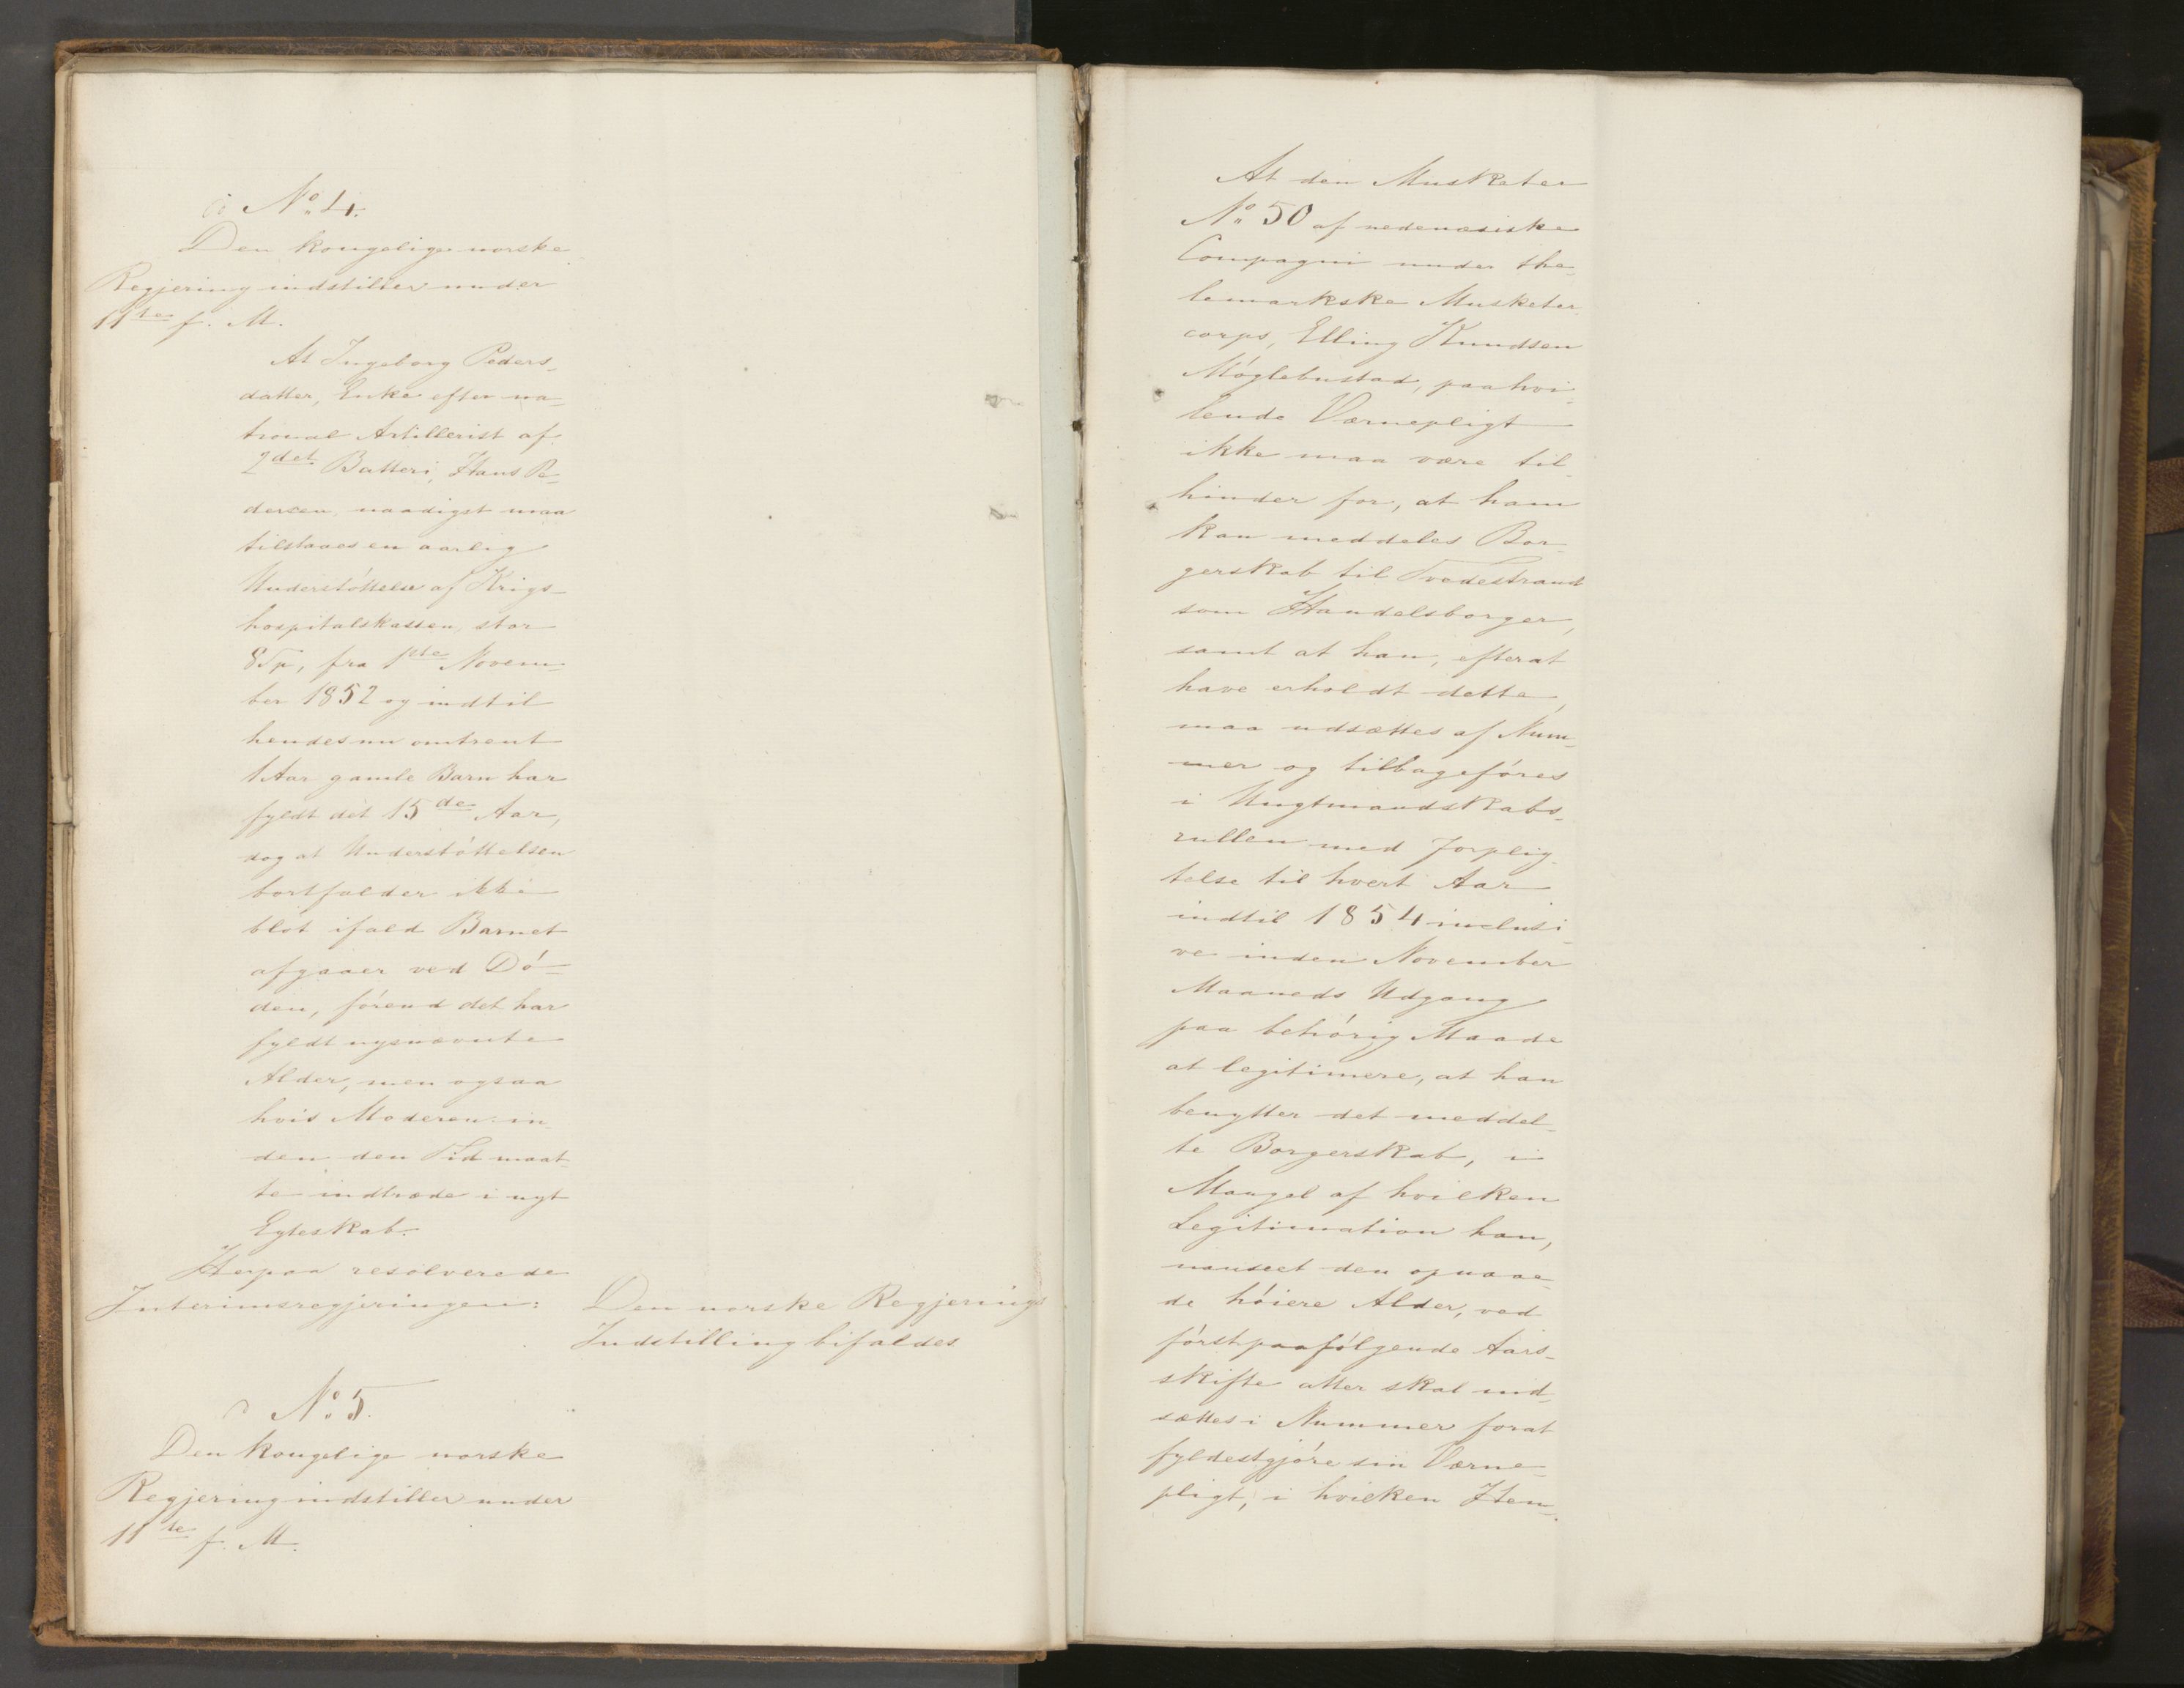 No 4.
Den kongelige norske
Regjering indstiller under
11te f. M.
At Ingeborg Peders-
datter, Enke efter na-
tional Artillerist af
2det Batteri, Hans Pe-
dersen, naadigst maa
tilstaaes en aarlig
Understöttelse af Krigs-
hospitalskassen, stor
8 Sp, fra 1ste Novem-
ber 1852 og indtil
hendes nu omtrent
1 Aar gamle Barn har
fyldt det 15de Aar,
dog at Understöttelsen
bortfalder ikke
blot ifald Barnet
afgaaer ved Dö-
den, förend det har
fyldt nysnævnte
Alder, men ogsaa
hvis Moderen in-
den den Tid maat-
te indtræde i nyt
Egteskab.
Herpaa resolverede
Interimsregjeringen:
Den norske Regjerings
Indstilling bifaldes
No 5.
Den kongelige norske
Regjering indstiller under
11te f. M.
At den Musketer
No 50 af nedenæsiske
Compagni under the-
lemarkske Musketer-
corps, Elling Knudsen
Möglebustad, paahvi-
lende Værnepligt
ikke maa være til-
hinder for, at ham
kan meddeles Bor-
gerskab til Tvedestrand
som Handelsborger,
samt at han, efterat
have erholdt dette,
maa udsættes af Num-
mer og tilbageföres
i Ungtmandskabs-
rullen med Forplig-
telse til hvert Aar
indtil 1854 inclusi-
ve inden November
Maaneds Udgang
paa behörig Maade
at legitimere, at han
benytter det meddel-
te Borgerskab, i
Mangel af hvilken
Legitimation han,
uanseet den opnaae-
de höiere Alder, ved
förstpaafölgende Aars-
skifte atter skal ind-
sættes i Nummer forat
fyldestgjöre sin Værne-
pligt, i hvilken Hen-